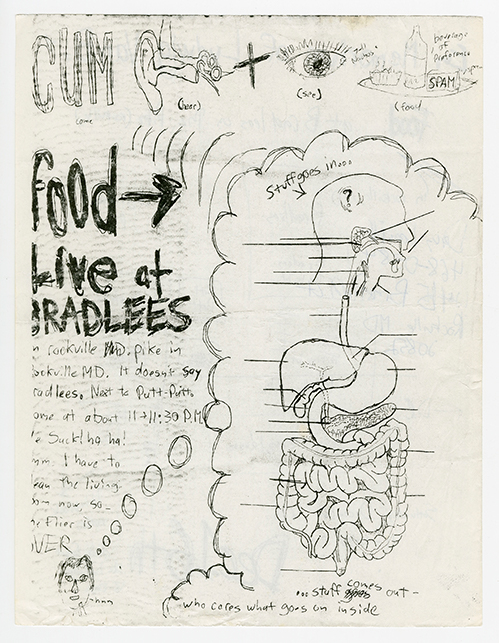 CUM
come
(hear)
+
(see)
beverage
of
preference
SPAM
(food
food →
Live at
BRADLEES
rockville MD. Pike in
ockville MD. It doesn't say
radlees. Next to Putt-Putt
ome at about 11→11:30 P.M
e Suck! ha ha!
mm I have to
ean the living
now, so
e flier is
OVER
hmm
stuff goes in...
?
...stuff comes goes out-
who cares what goes on inside